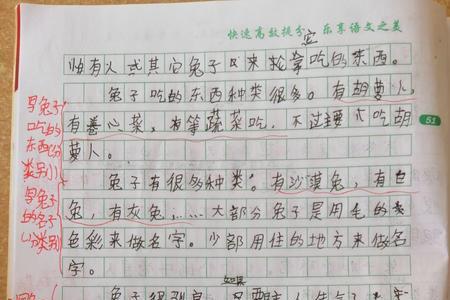 快速高效提分 乐享语文之美
怕有人或其它兔子又来抢拿它吃的东西。
兔子吃的东西种类很多。有胡萝人,
有善心菜,有等蔬菜吃,不过主要吃胡
萝人。
51
兔子有很多种类。有沙漠兔,有白
兔,有灰兔,……大部分兔子是用毛的
色彩来做名字。少部用住的地方来做名
字。
如果
兔子
写兔子
吃的
东西(分
类别)
写兔子
的名子
(分类别)